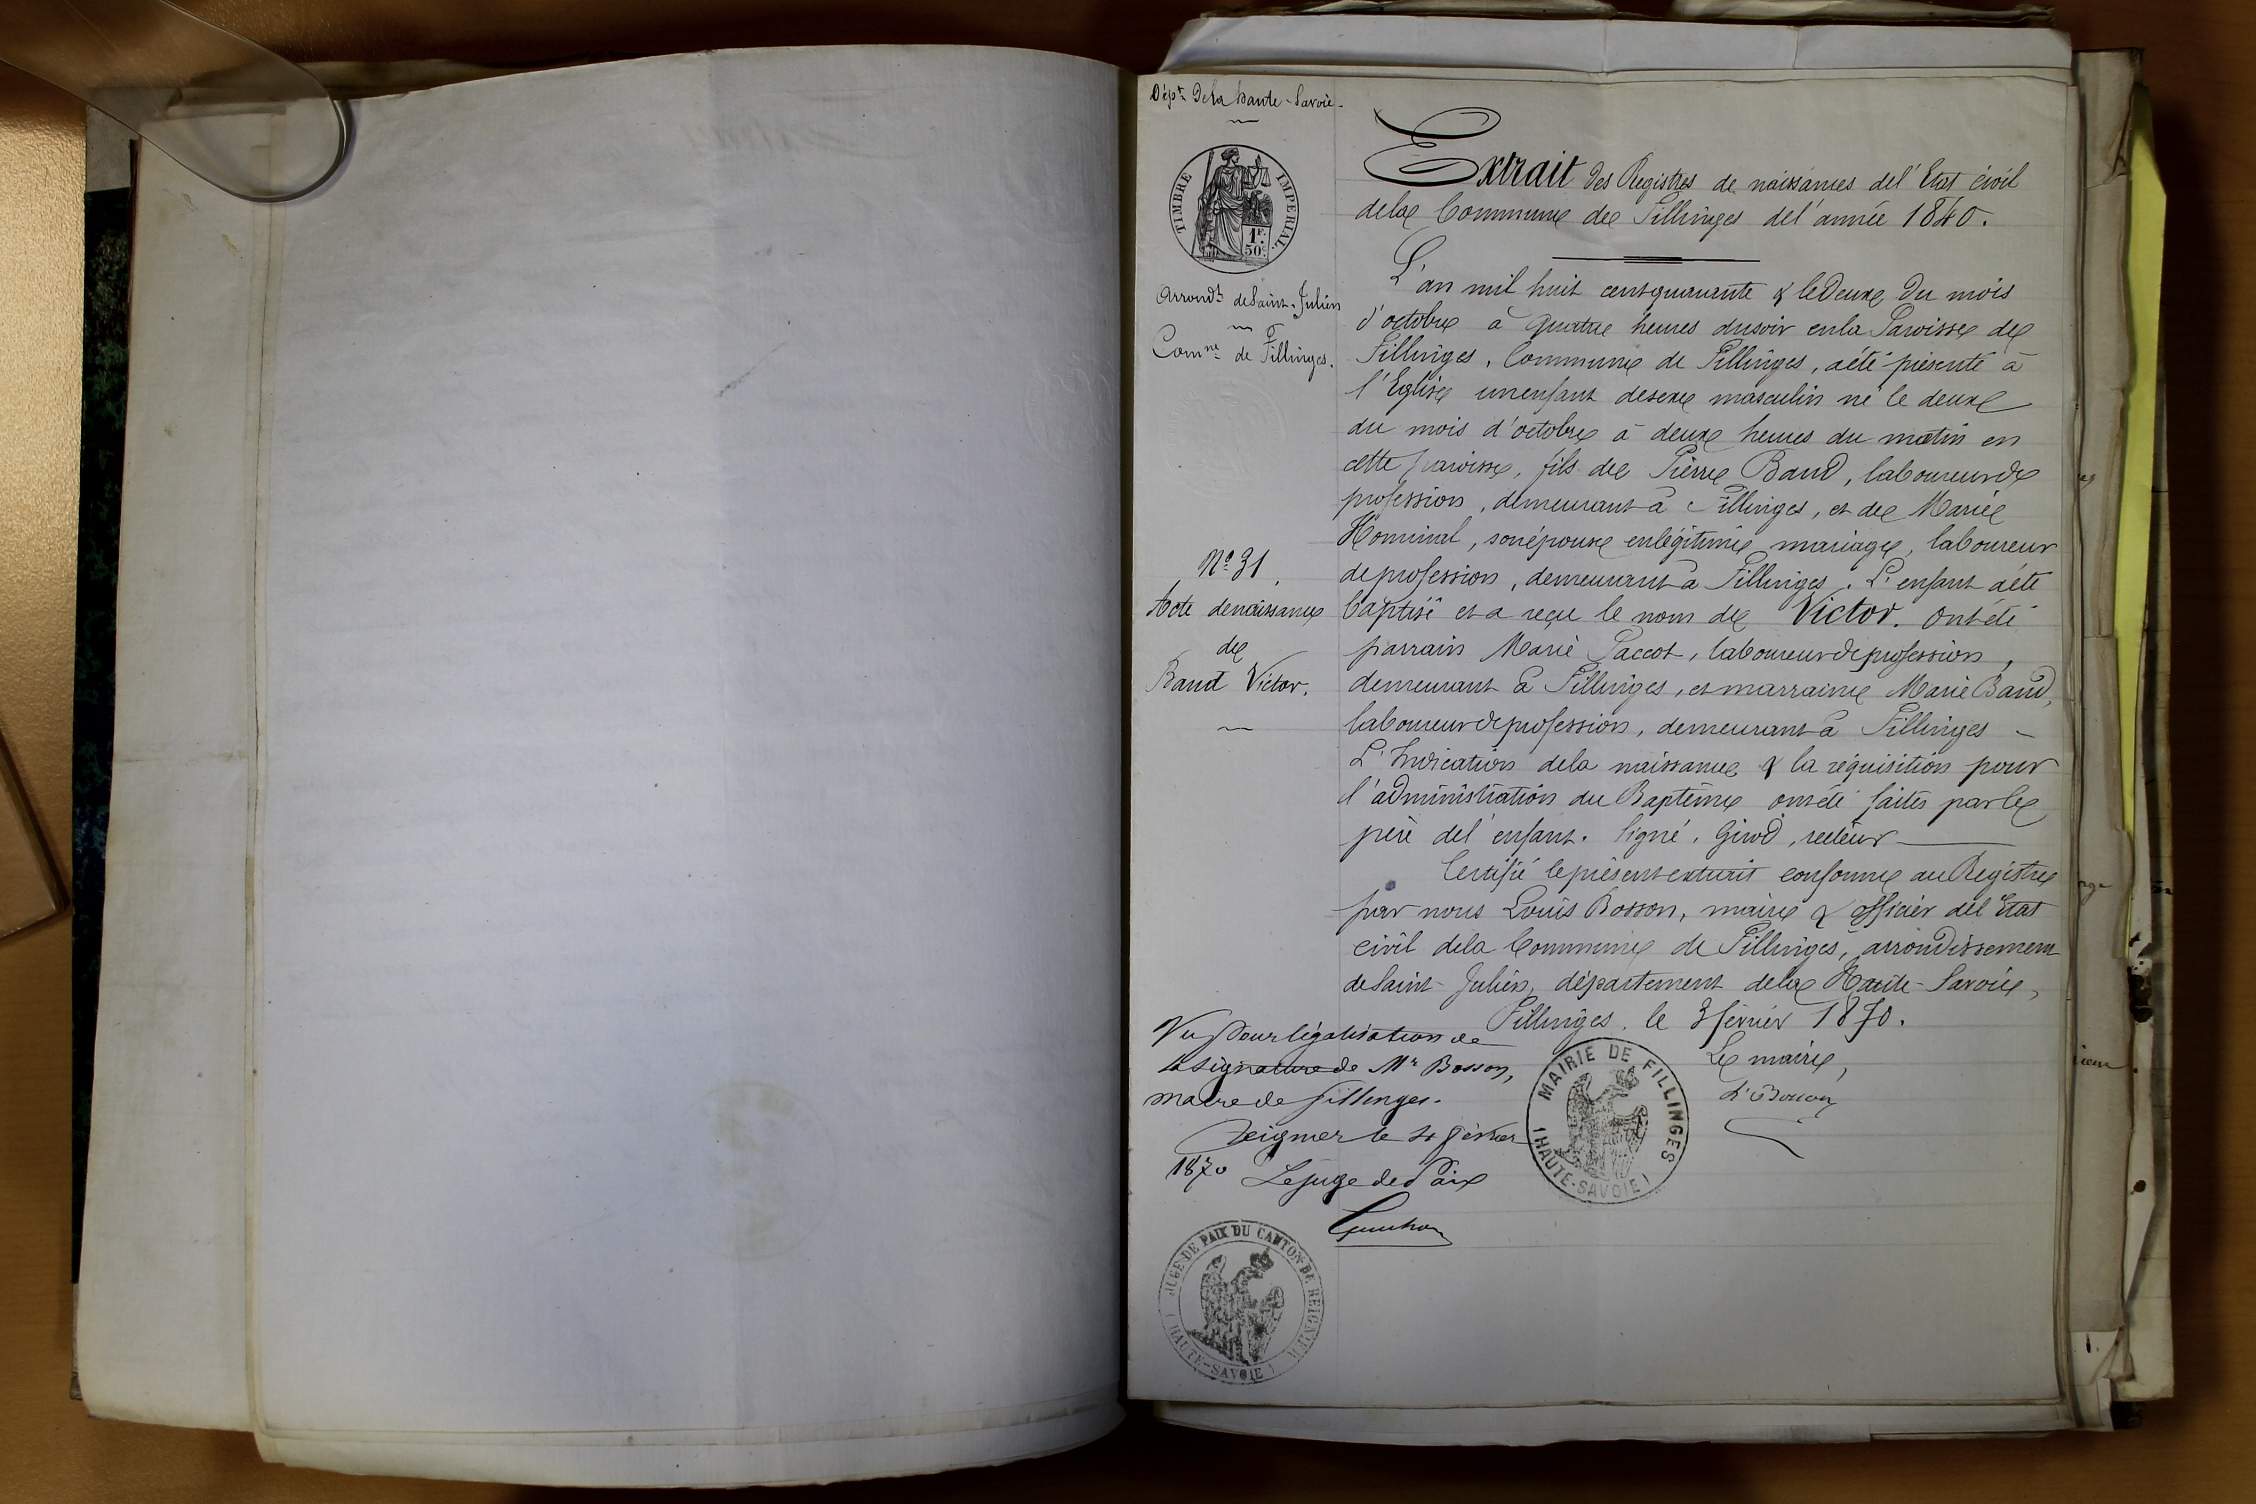 Dépt De la haute-Savoie.
TIMBRE IMPÉRIAL.
1F.
50c.
Arrondt de Saint-Julien
Comne de Fillinges.
No 31.
Acte de naissance
de
Baud Victor.
Extrait des Registres de naissances de l'Etat civil
de la Commune de Fillinges de l'année 1840.
L'an mil huit cent quarante & le Deux Du mois
d'octobre à quatre heures du soir en la Paroisse de
Fillinges, Commune de Fillinges, a été présenté à
l'Eglise un enfant de sexe masculin né le deux
du mois d'octobre à deux heures du matin en
cette paroisse, fils de Pierre Baud, laboureur de
profession, demeurant à Fillinges, et de Marie
Hominal, son épouse en légitime mariage, laboureur
de profession, demeurant à Fillinges. L'enfant a été
baptisé et a reçu le nom de Victor. Ont été
parrain Marie Paccot, laboureur de profession,
demeurant à Fillinges, et marraine Marie Baud,
laboureur de profession, demeurant à Fillinges -
L'Indication de la naissance & la réquisition pour
l'administration du Baptême ont été faites par le
père de l'enfant. Signé, Girod, recteur
Certifié le présent extrait conforme au Registre
par nous Louis Bosson, maire & officier de l'Etat
civil de la Commune de Fillinges, arrondissement
de Saint-Julien, département de la Haute-Savoie,
Fillinges, le 3 février 1870.
Le maire,
L. Bosson
MAIRIE DE FILLINGES
(HAUTE-SAVOIE)
Vu pour légalisation de
la signature de Mr Bosson,
maire de fillinges.
Reignier le 4 février
1870 Le juge de Paix
JUGE DE PAIX DU CANTON DE REIGNIER
(HAUTE-SAVOIE)